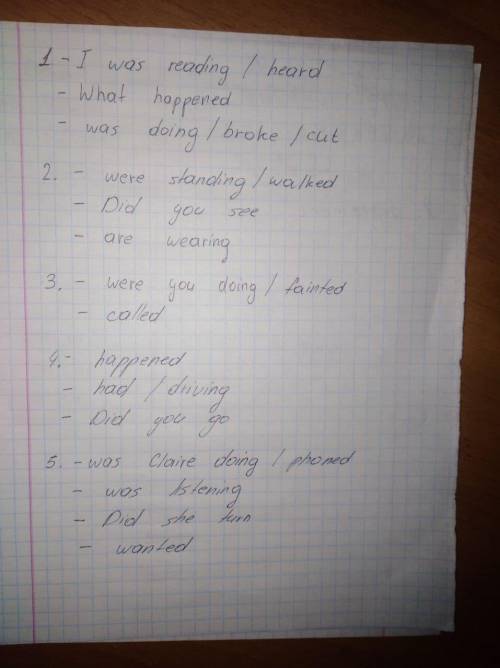 1 - I was reading / heard
- What happened
- was doing / broke / cut
2. - were standing / walked
- Did you see
- are wearing
3. - were you doing / fainted
- called
4. - happened
- had / driving
- Did you go
5. - was Claire doing / phoned
- was listening
- Did she turn
- wanted